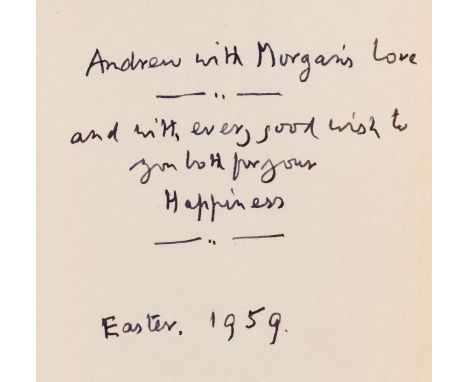 Andrew with Morgan's love
and with every good wish to
you both for your
Happiness
Easter. 1959.